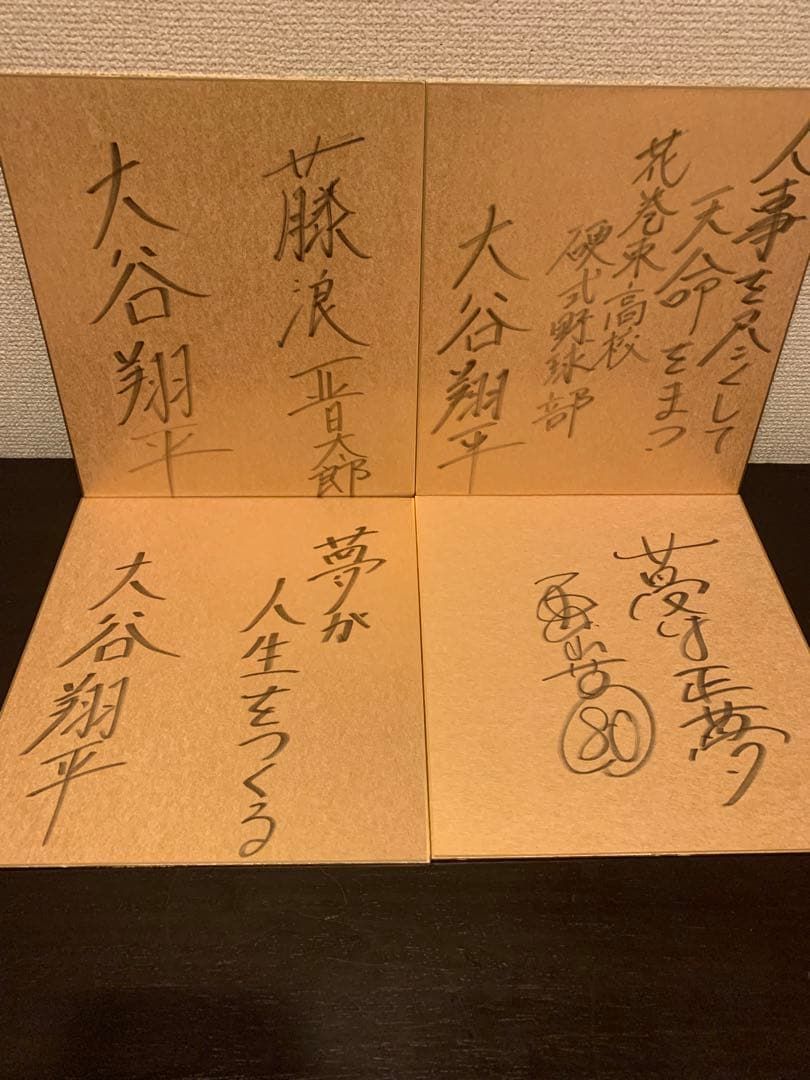 藤浪晋太郎
大谷翔平
人事を尽くして
天命をまつ
花巻東高校
硬式野球部
大谷翔平
夢が
人生をつくる
大谷翔平
夢は正夢
80